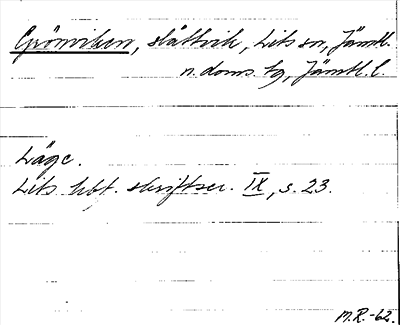 Grönviken, slåttvik, Lits sn, Jämtl.
n. doms. tg, Jämtl. l.
Läge.
Lits hbf. skriftser. IX, s. 23.
M.R.-62.